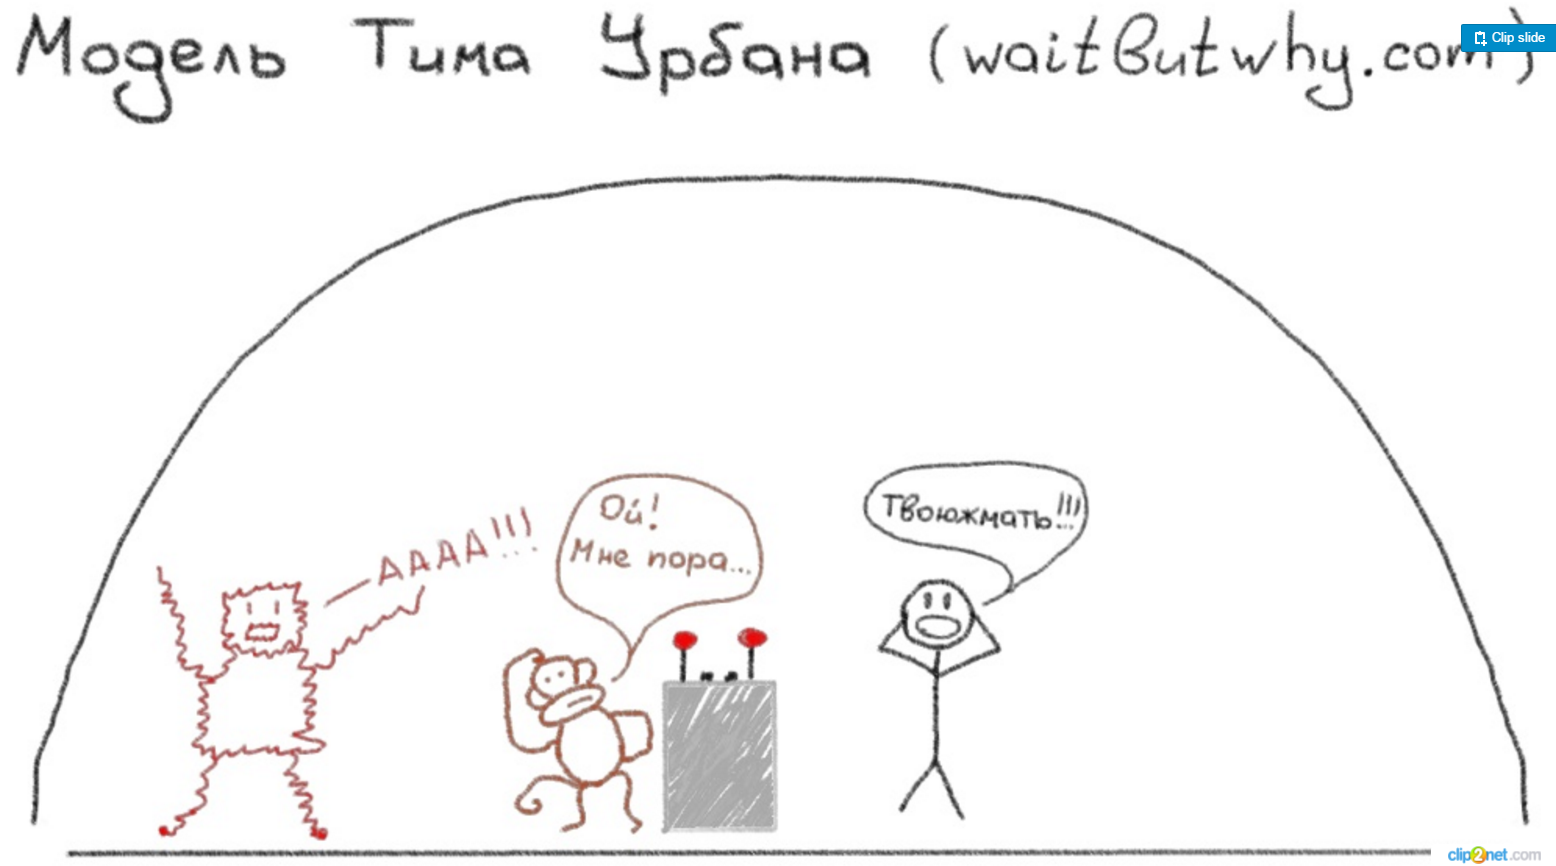 Модель Тима Урбана (waitButwhy.com)
Clip slide
— АААА!!!
Ой!
Мне пора...
Твоюжмать!!!
clip2net.com